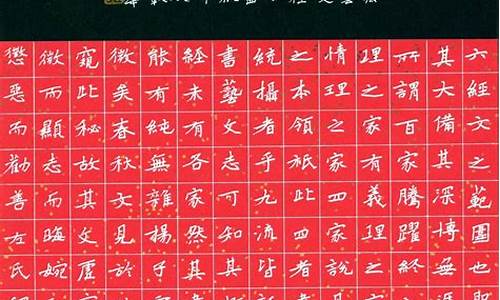 六經文之範圍也
其大備其深博無
所謂百家騰躍終
理之家有義理之
情理之家四家說
之本領祇此四者
統攝者乎九流皆
書藝文志可知其
經未有各家然其
能有純無雜楊子
徵矣春秋文見於
窺此秘故其文虛
徵而顯志而晦婉
懲惡而勸善左氏